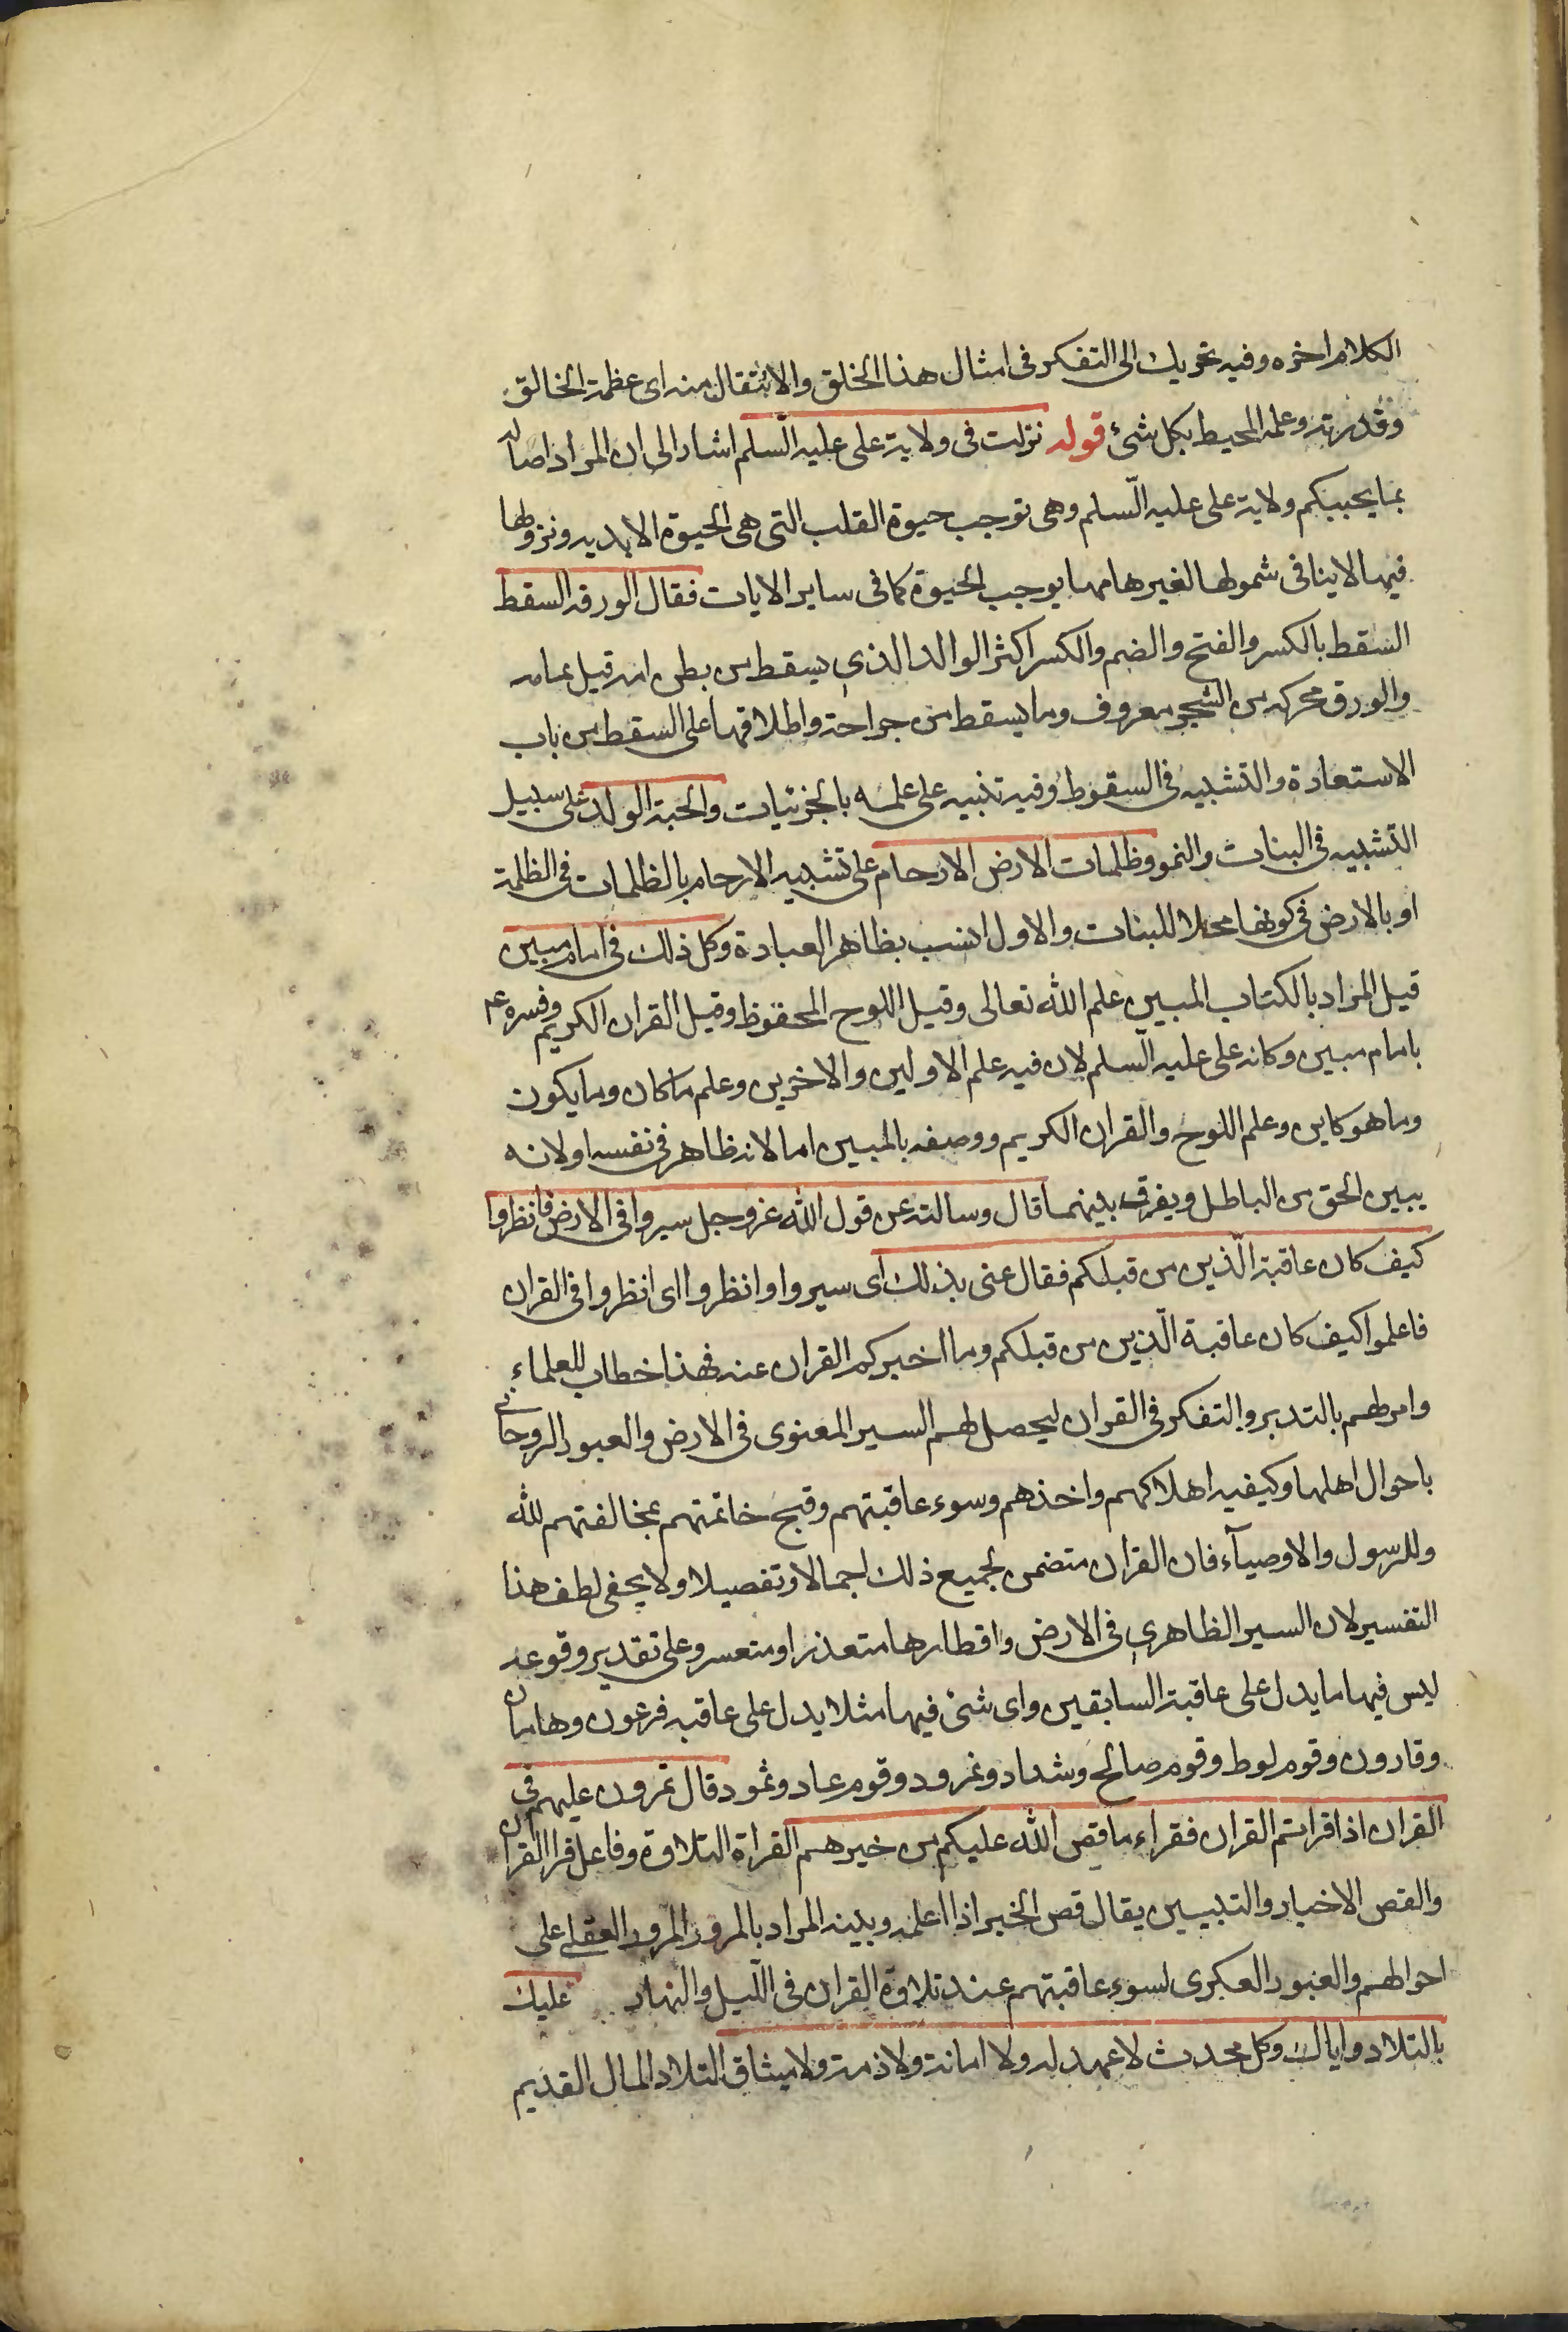 الكلام اخره وفيه تحريك الى التفكر فى امثال هذا الخلق والانتقال منه اى عظمة الخالق
وقدرته وعلمه المحيط بكل شئ قوله نزلت فى ولاية على عليه السّلم اشار الى ان المراد اصاله
بما يحييكم ولاية على عليه السّلم وهى توجب حيوة القلب التى هى الحيوة الابديه ونزولها
فيها لا ينافى شمولها لغيرها مما يوجب الحيوة كما فى ساير الايات فقال الورقه السقط
السقط بالكسر والفتح والضم والكسر اكثر الوالد الذى يسقط من بطن امه قبل تمامه
والورق محركه من الشجر معروف وما يسقط من جراحة واطلاقها على السقط من باب
الاستعارة والتشبيه فى السقوط وفيه تنبيه على علمه بالجزئيات والحبة الولد على سبيل
التشبيه فى البنات والنمو وظلمات الارض الارحام على تشبيه الارحام بالظلمات فى الظلمة
او بالارض فى كونها محلا للبنات والاول انسب بظاهر العبادة وكل ذلك فى امام مبين
قيل المراد بالكتاب المبين علم الله تعالى وقيل اللوح المحفوظ وقيل القران الكريم وفسره عم
بامام مبين وكانه على عليه السّلم لان فيه علم الاولين والاخرين وعلم ما كان وما يكون
وما هو كاين وعلم اللوح والقران الكريم ووصفه بالمبين اما لانه ظاهر فى نفسه او لانه
يبين الحق من الباطل ويفرق بينهما قال وسالته عن قول الله عز وجل سيروا فى الارض فانظروا
كيف كان عاقبة الّذين من قبلكم فقال عنى بذلك اى سيروا وانظروا اى انظروا فى القران
فاعلموا كيف كان عاقبة الّذين من قبلكم وما اخبركم القران عنه فهذا خطاب للعلماء
وامر لهم بالتدبر والتفكر فى القران ليحصل لهم السير المعنوى فى الارض والعبور الروحانى
باحوال اهلها وكيفيه اهلاكهم واخذهم وسوء عاقبتهم وقبح خاتمتهم بمخالفتهم لله
وللرسول والاوصيآء فان القران متضمن لجميع ذلك اجمالا وتفصيلا ولا يخفى لطف هذا
التفسير لان السير الظاهرى فى الارض واقطارها متعذر او متعسر وعلى تقدير وقوعه
ليس فيها ما يدل على عاقبة السابقين واى شئ فيها مثلا يدل على عاقبه فرعون وهامان
وقارون وقوم لوط وقوم صالح وشداد ونمرود وقوم عاد وثمود قال تمرون عليهم فى
القران اذا قراتم القران فقراء ما قص الله عليكم من خبرهم القراة التلاوة وفاعل قرا القران
والقص الاخبار والتبيين يقال قص الخبر اذا اعلمه وبينه المراد بالمرور المرور العقلى على
احوالهم والعبور العكرى لسوء عاقبتهم عند تلاوة القران فى اللّيل والنهار عليك
بالتلاد واياك وكل محدث لا عهد له ولا امانة ولا ذمة ولا ميثاق التلاد المال القديم